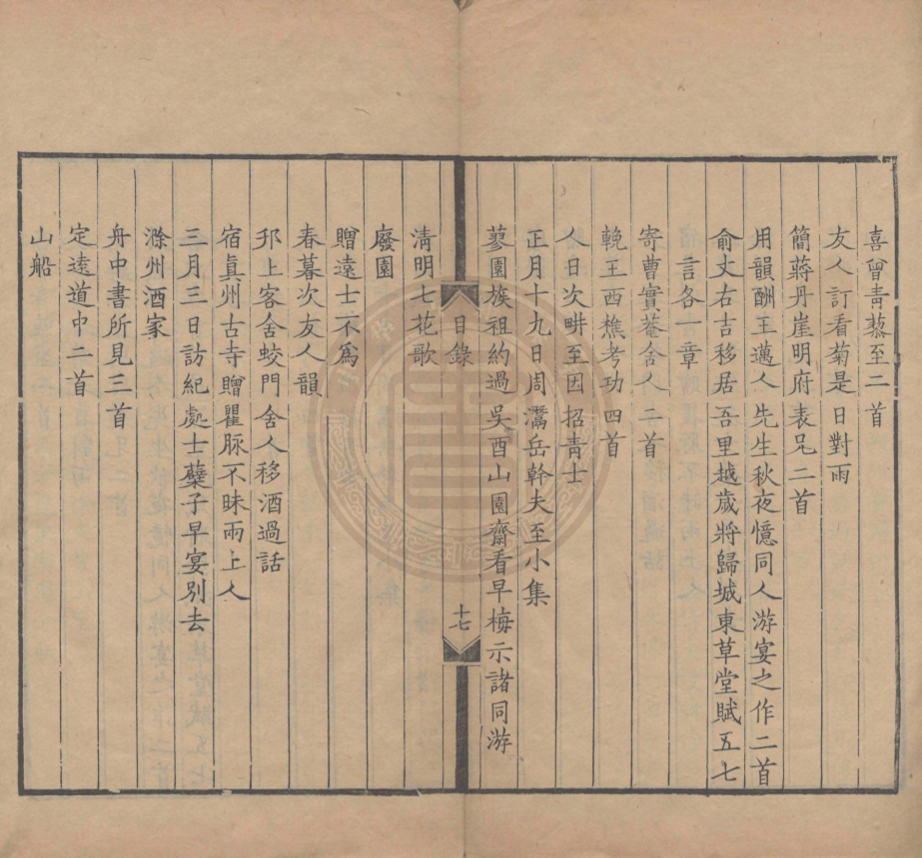 喜曾青藜至二首
友人訂看菊是日對雨
簡蔣丹崖明府表兄二首
用韻酬王邁人先生秋夜憶同人游宴之作二首
俞丈右吉移居吾里越歲將歸城東草堂賦五七
言各一章
寄曹實菴舍人二首
輓王西樵考功四首
人日次畊至因招青士
正月十九日周鷹岳幹夫至小集
蓼園族祖約過吳酉山園齋看早梅示諸同游
目錄
十七
清明七花歌
廢園
贈遠士不為
春暮次友人韻
邗上客舍蛟門舍人移酒過話
宿真州古寺贈瞿脈不昧兩上人
三月三日訪紀處士蘗子早宴別去
滁州酒家
舟中書所見三首
定遠道中二首
山船